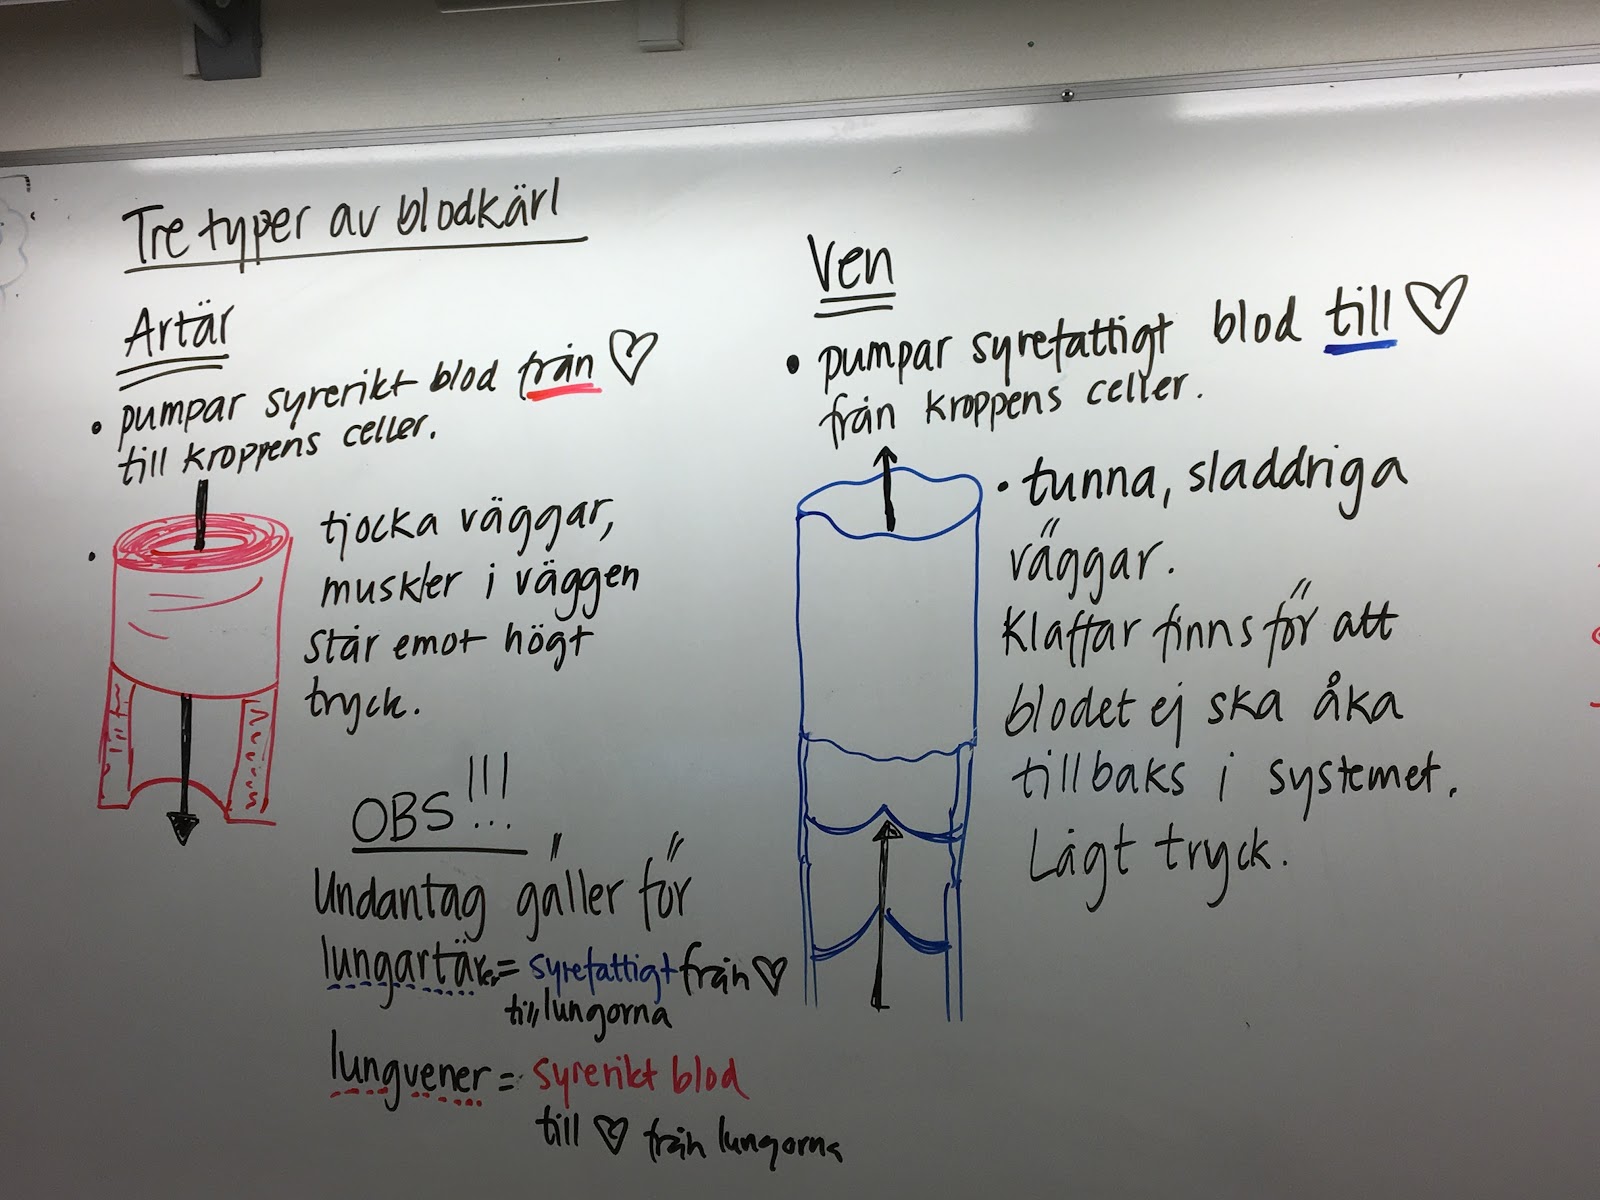 Tre typer av blodkärl
Artär
• pumpar syrerikt blod från ♡
till kroppens celler.
• tjocka väggar,
muskler i väggen
står emot högt
tryck.
OBS!!!
Undantag gäller för
lungartärer = syrefattigt från ♡
till lungorna
lungvener = syrerikt blod
till ♡ från lungorna
Ven
• pumpar syrefattigt blod till ♡
från kroppens celler.
• tunna, sladdriga
väggar.
Klaffar finns för att
blodet ej ska åka
tillbaks i systemet.
Lågt tryck.